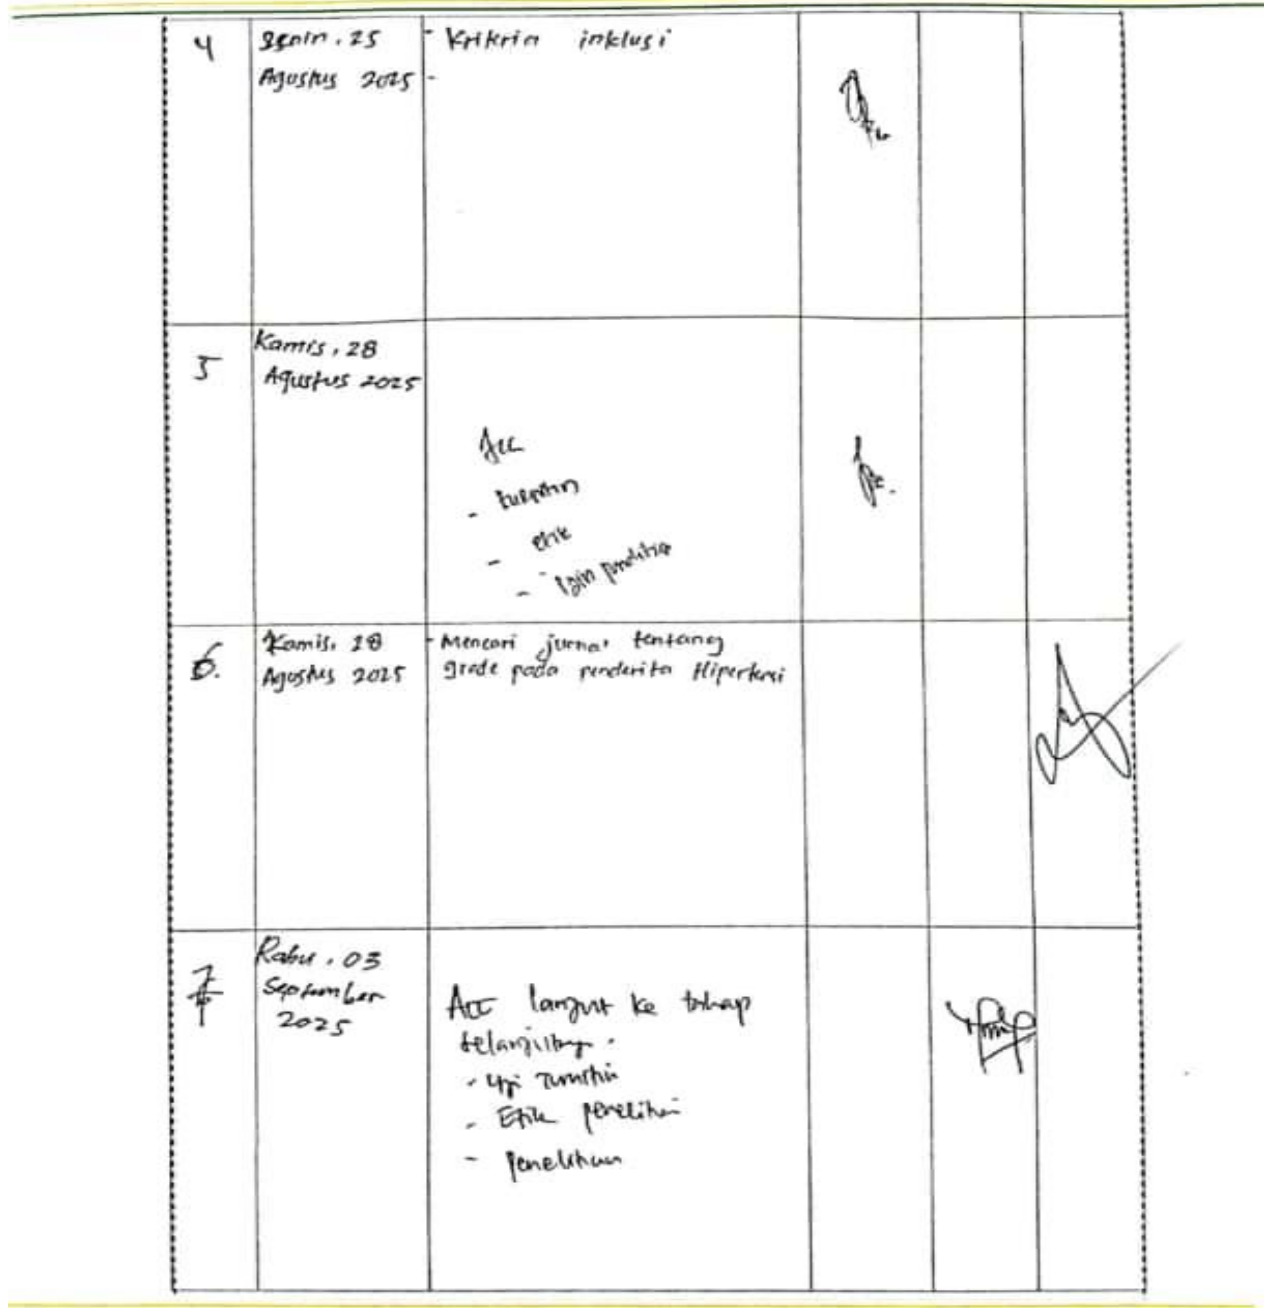 4
Senin, 25
Agustus 2025
- Krikria inklusi
-
5
Kamis, 28
Agustus 2025
Acc
- Turnitin
- etik
- Izin penelitia
6.
Kamis, 28
Agustus 2025
- Mencari jurnal tentang
grade pada penderita Hipertensi
7
Rabu, 03
September
2025
Acc lanjut ke tahap
selanjutnya.
- Uji Turnitin
- Etik penelitian
- Penelitian